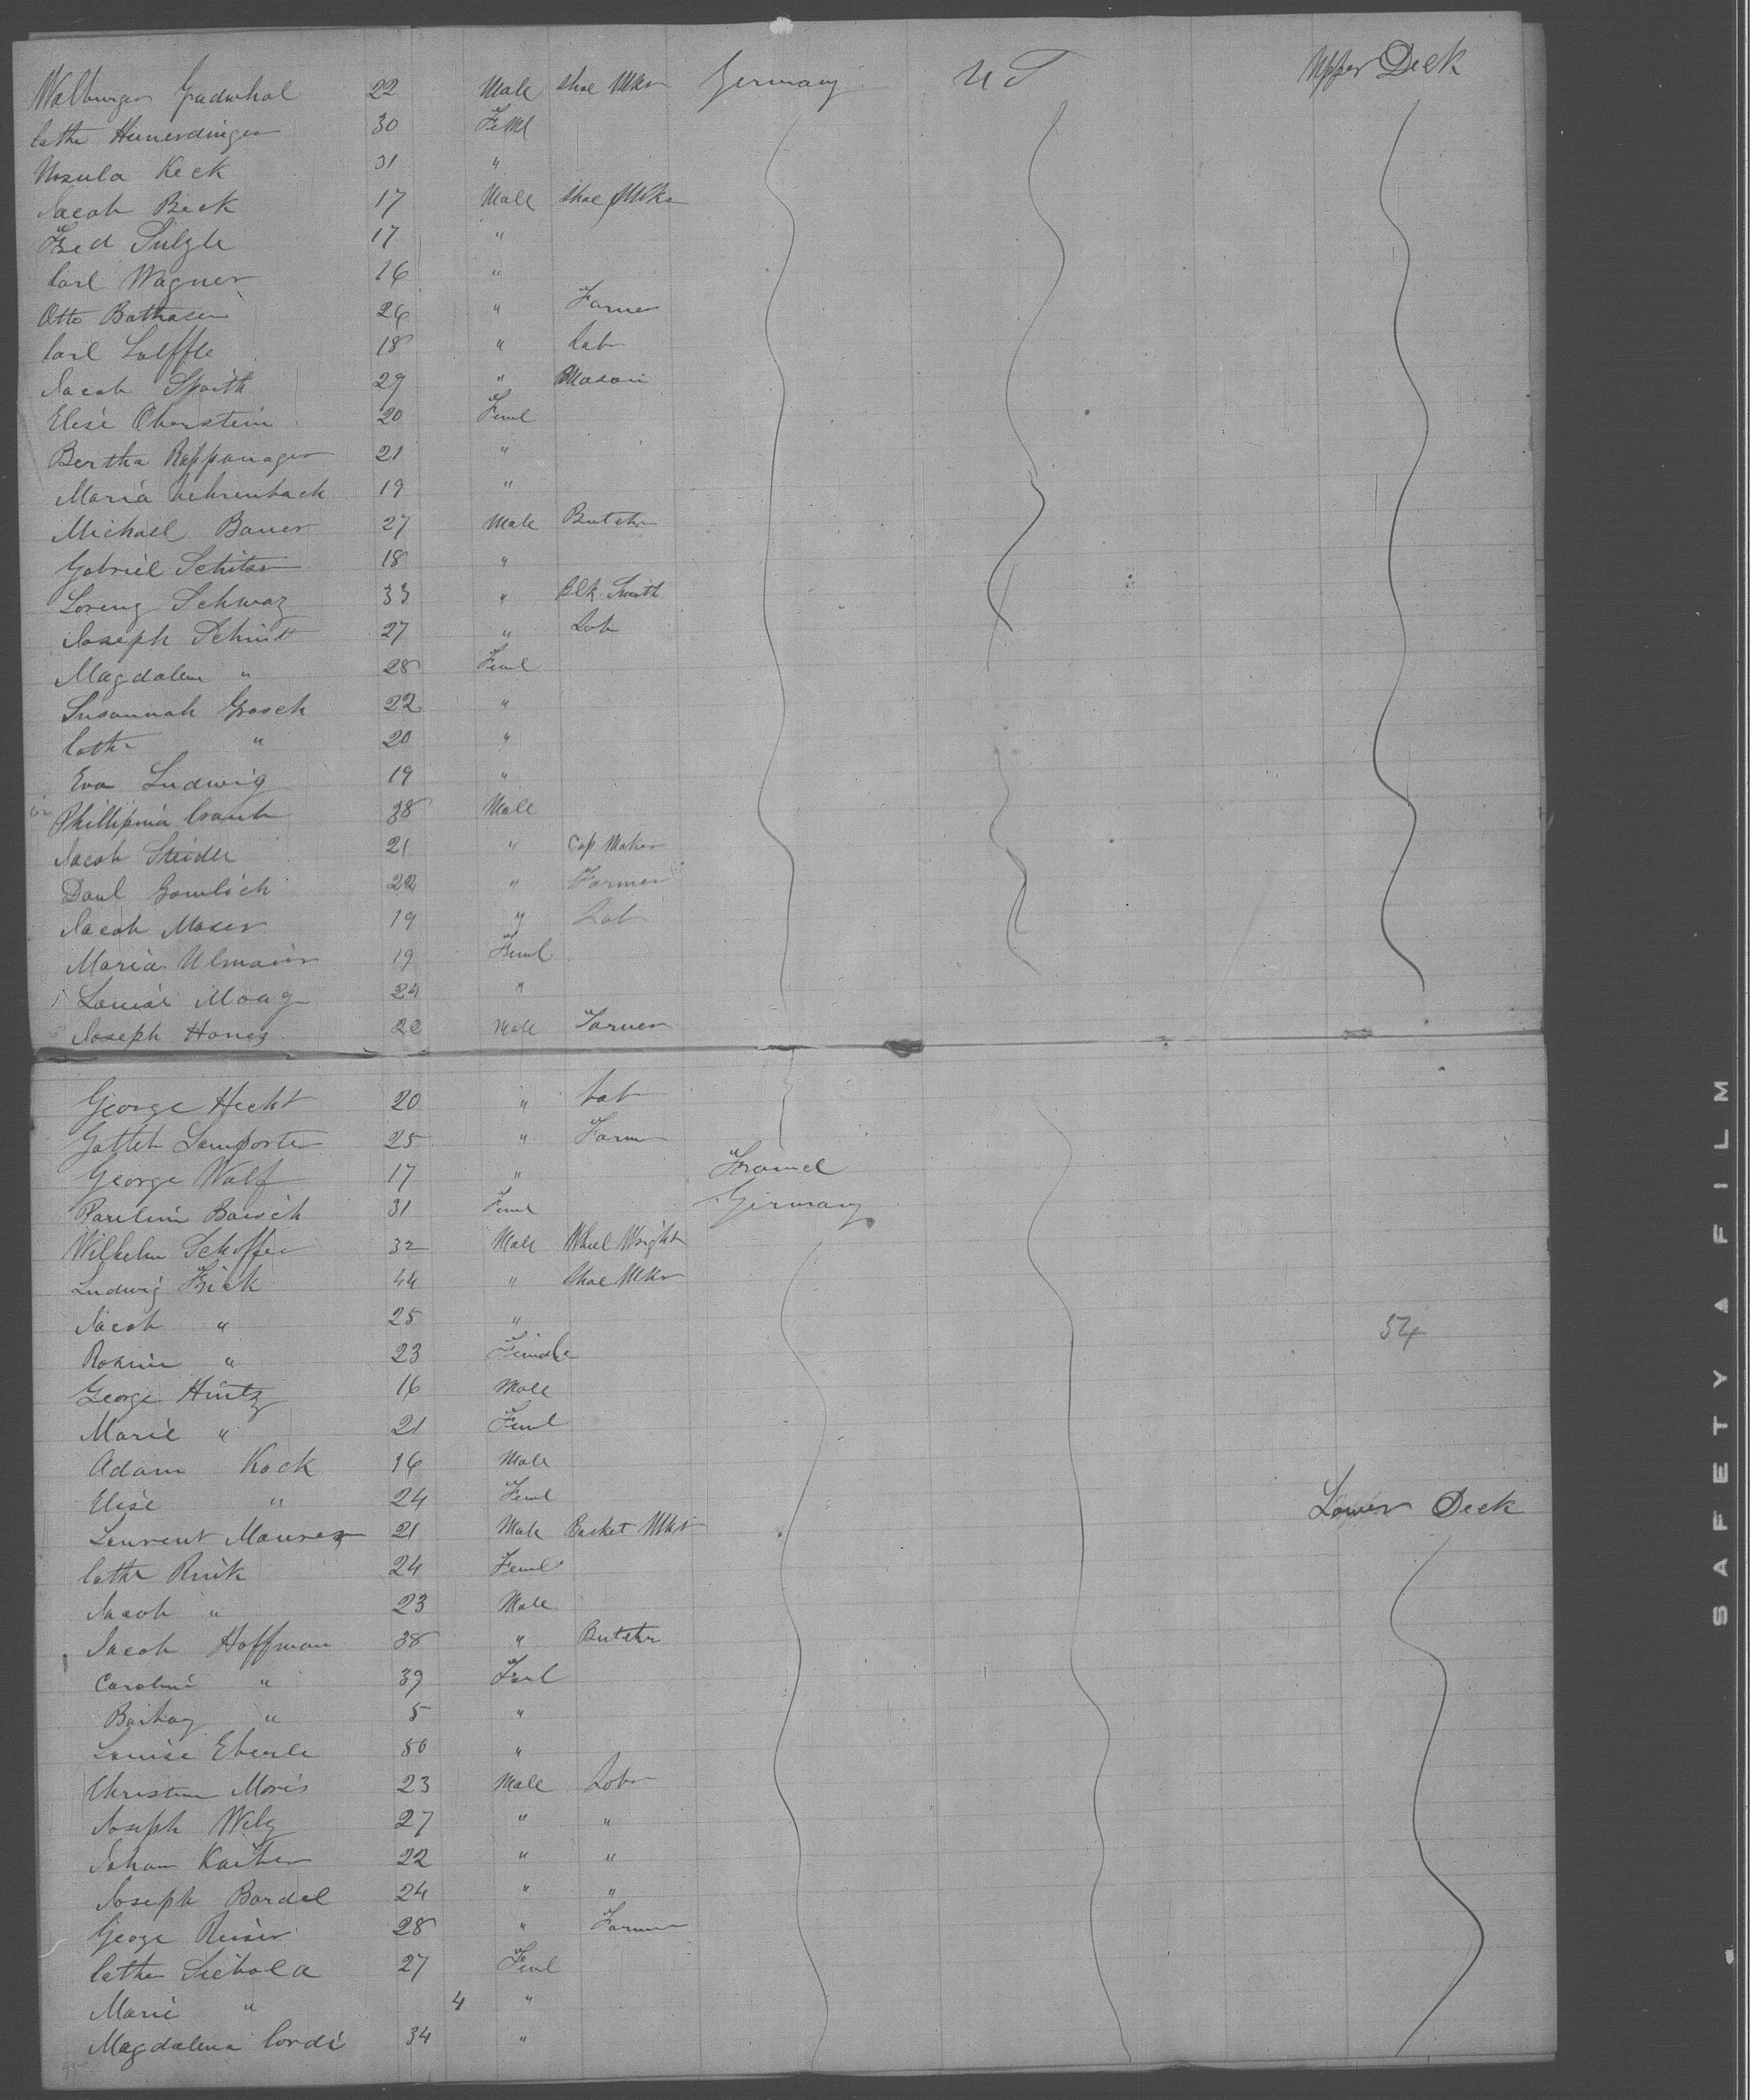 Walburger Gradwhol 22 Male Shoe Mkr Germany U S Upper Deck
Cathe Hunerdinger 30 Feml
Ursula Keck 31 "
Jacob Beck 17 Male Shoe Mkr
Fred Sulzle 17 "
Carl Wagner 16 "
Otto Bathasen 26 " Farmer
Carl Lolffle 18 " Labr
Jacob Spaith 29 " Mason
Elise Oberstein 20 Feml
Bertha Rappanager 21 "
Maria Vehrenback 19 "
Michael Bauer 27 Male Butchr
Gabriel 18 "
Lorenz Schwaz 33 " Blk Smith
Joseph Schmitt 27 " Lab
Magdalena " 28 Feml
Susannah Grosch 22 "
Cathe " 20 "
Eva Ludwig 19 "
Phillipina 38 Male
Jacob Steidle 21 " Cap Maker
Paul 22 " Farmer
Jacob Moser 19 " Lab
Maria Ulmaier 19 Feml
Louise Moag 24 "
Joseph Haneg 22 Male Farmer
George Hecht 20 " Lab
Gottleb Lamporte 25 " Farm
George Wolf 17 " France
Paulini Baisch 31 Feml Germany
Wilhelm Schoffer 32 Male Wheel Wright
Ludwig Frick 44 " Shoe Mkr
Jacob " 25 "
Rosine " 23 Female
George Hintz 16 Male
Marie " 21 Feml
54
Adam Kock 16 Male
Elise " 24 Feml Lower Deck
Laurent Maurer 21 Male Basket Mkr
Cathe Rink 24 Feml
Jacob " 23 Male
Jacob Hoffman 38 " Butchr
Carolini " 39 Feml
" 5 "
Louise Eberle 50 "
Christian Moris 23 Male Labr
Joseph Welz 27 " "
Johan Kaither 22 " "
Joseph Bardel 24 " "
George Reiser 28 " Farmer
Cathe Siebold 27 Feml
Marie " 4 "
Magdalena Cordi 34 "
SAFETY A FILM